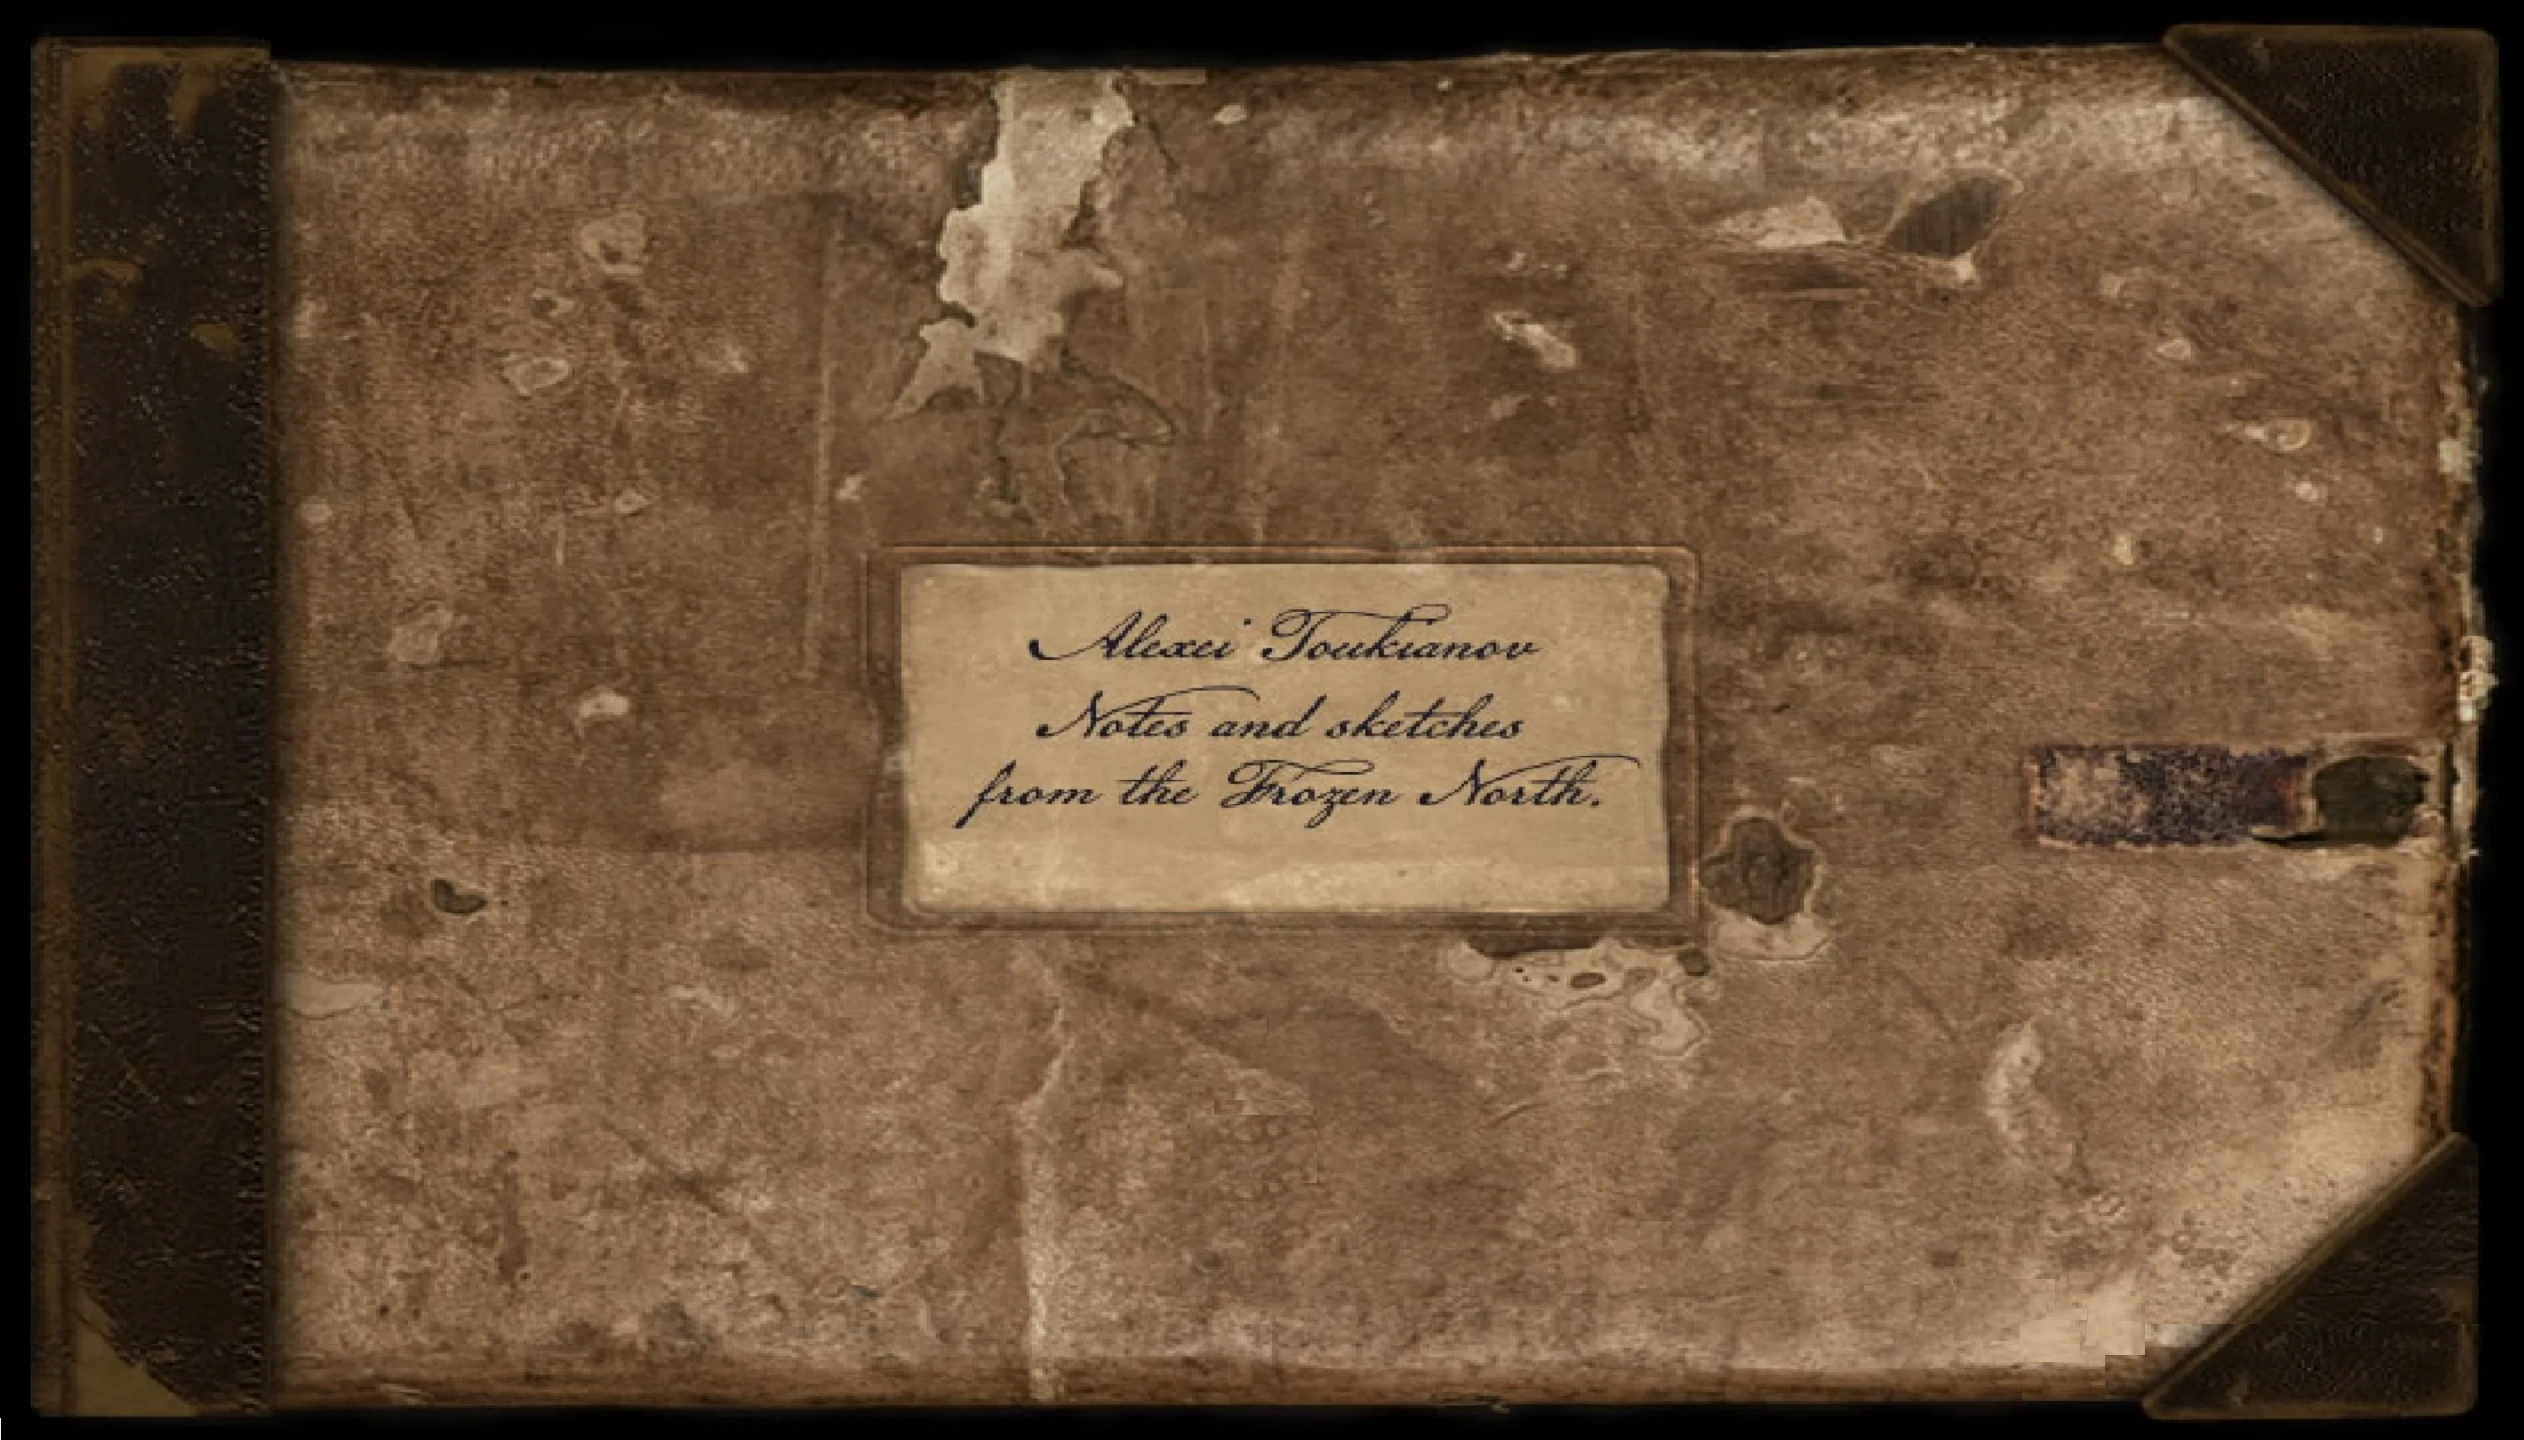 Alexei Toukianov
Notes and sketches
from the Frozen North.